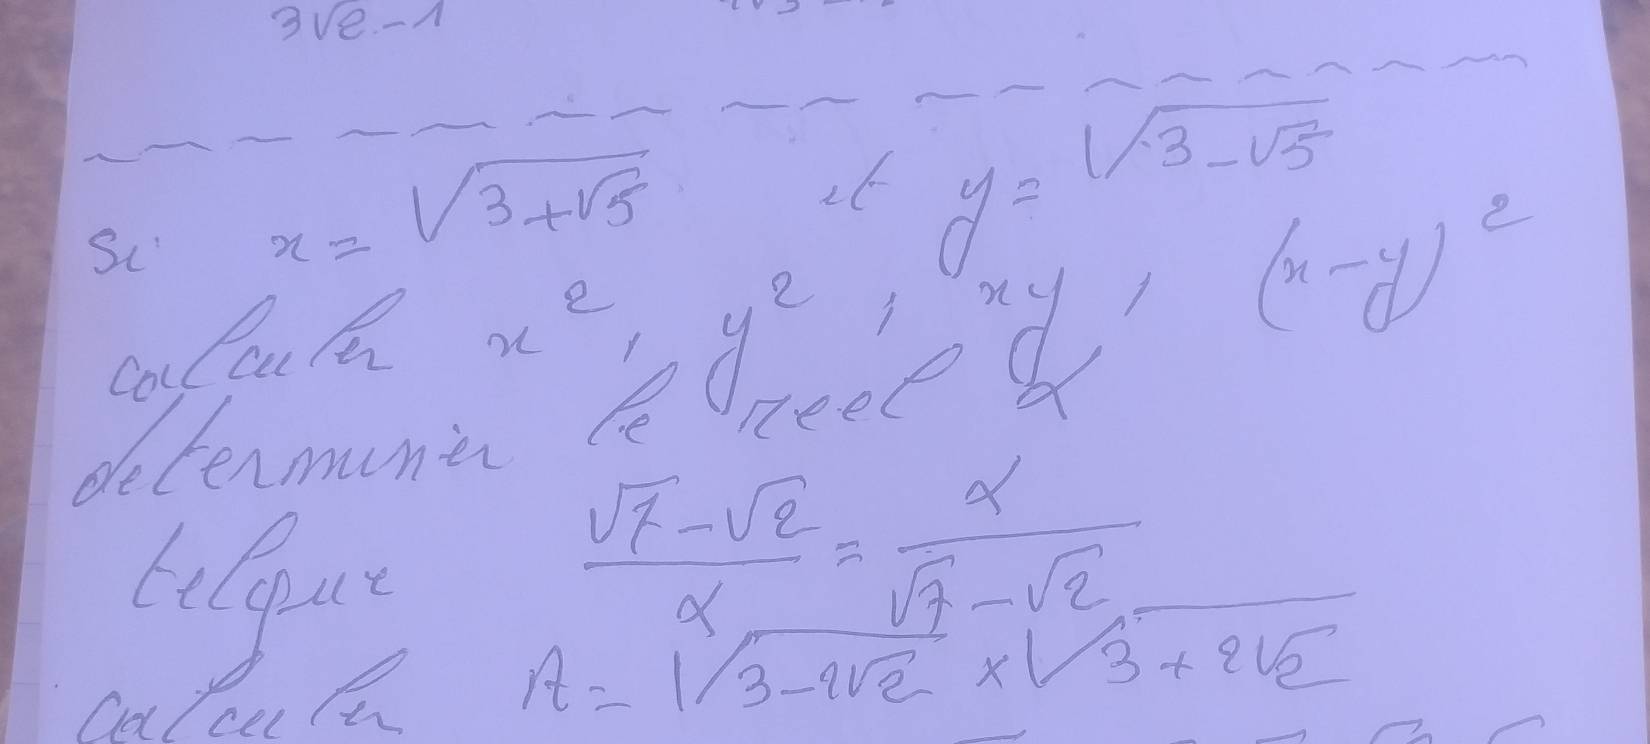 3√2 - 1
Si x = √(3+√5) et y = √(3-√5)
calculer x², y², xy, (x-y)²
determiner le reel α
telque (√7-√2)/α = α/(√7-√2)
calculer A = √(3-2√2) × √(3+2√2)